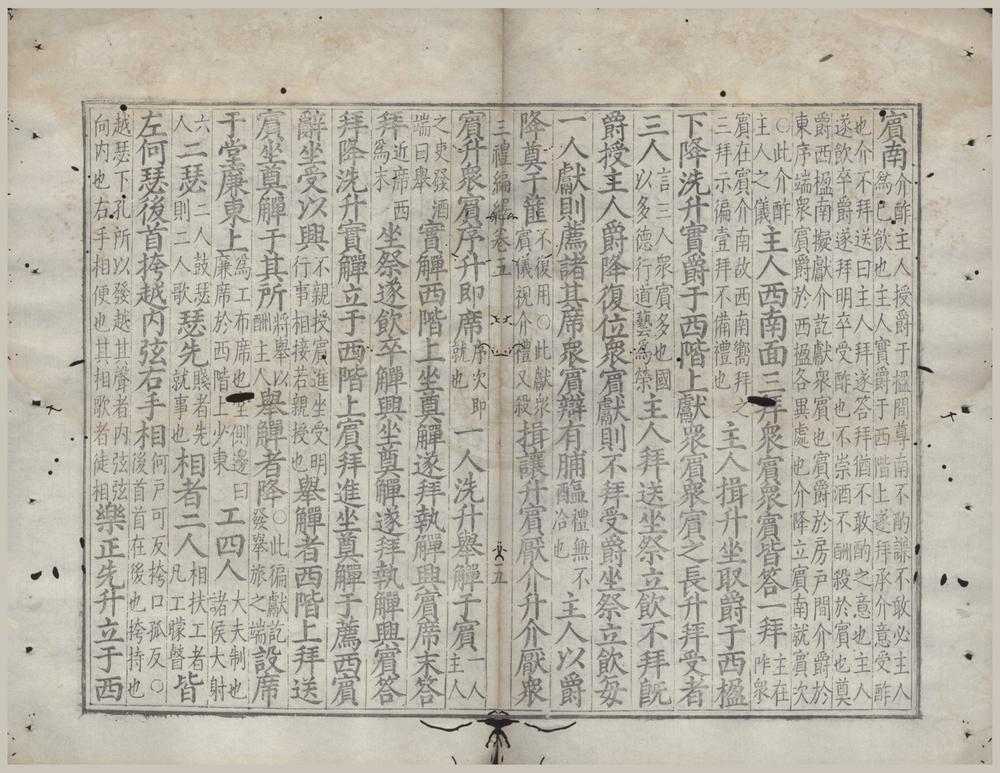 賓南介酢主人授爵于楹間尊南不酌謙不敢必主人
爲己飲也主人實爵于西階上遂拜承介意受酢
也介不拜送曰主人拜遂答拜猶不敢酌之意也主人
遂飲卒爵遂拜明卒受酢也不崇酒不酬殺於賓也奠
爵西楹南擬獻介訖獻衆賓也賓爵於房戶間介爵於
東序端衆賓爵於西楹各異處也介降立賓南就賓次
○此介酢
主人之儀主人西南面三拜衆賓衆賓皆答一拜主在
阼衆
賓在賓介南故西南嚮拜之
三拜示徧壹拜不備禮也主人揖升坐取爵于西楹
下降洗升實爵于西階上獻衆賓衆賓之長升拜受者
三人言三人衆賓多也國
以多德行道藝爲榮主人拜送坐祭立飲不拜旣
爵授主人爵降復位衆賓獻則不拜受爵坐祭立飲每
一人獻則薦諸其席衆賓辯有脯醢禮無不
洽也主人以爵
降奠于篚不復用○此獻衆
賓儀視介禮又殺揖讓升賓厭介升介厭衆
三禮編繹卷五
五
賓升衆賓序升即席序次即
就也一人洗升舉觶于賓一人
主人
之吏發酒
端曰舉實觶西階上坐奠觶遂拜執觶興賓席末答
拜近席西
爲末坐祭遂飲卒觶興坐奠觶遂拜執觶興賓答
拜降洗升實觶立于西階上賓拜進坐奠觶于薦西賓
辭坐受以興不親授賓進坐受明
行事相接若親授也舉觶者西階上拜送
賓坐奠觶于其所將舉以
酬主人舉觶者降○此徧獻訖
發舉旅之端設席
于堂廉東上爲工布席也坐側邊曰
廉席於西階上少東工四人大夫制也
諸侯大射
六人二瑟二人鼓瑟
則二人歌瑟先賤者先
就事也相者二人相扶工者
凡工矇瞽皆
左何瑟後首挎越内弦右手相何戶可反挎口孤反○
後首首在後也挎持也
越瑟下孔所以發越其聲者内弦弦
向内也右手相便也其相歌者徒相樂正先升立于西